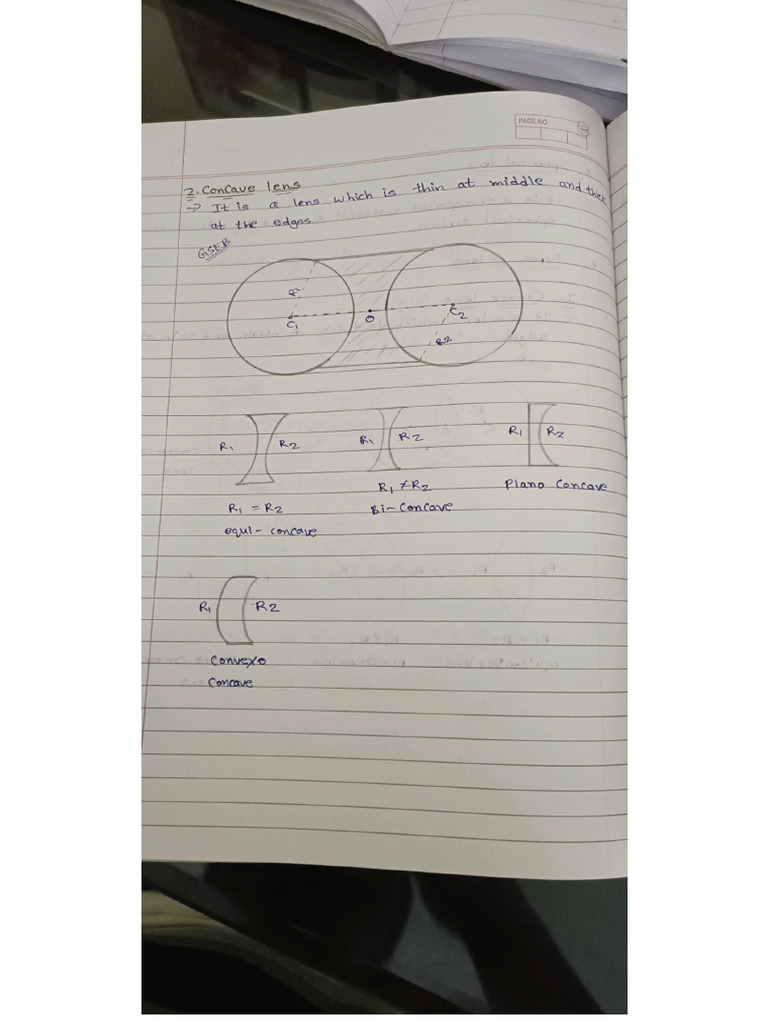 PAGE NO
2. Concave lens
→ It is a lens which is thin at middle and thick
at the edges
GSEB
R1
C1 O C2
R2
R1 R2 R1 R2 R1 R2
R1 = R2 R1 ≠ R2 Plano Concave
equi- concave Bi- Concave
R1 R2
Convexo
Concave